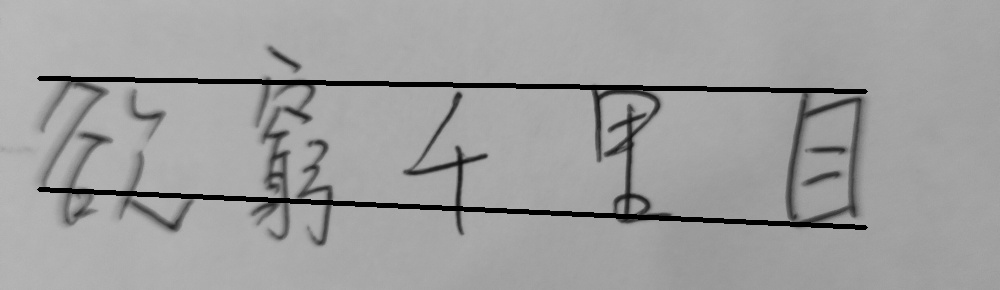 欲穷千里目